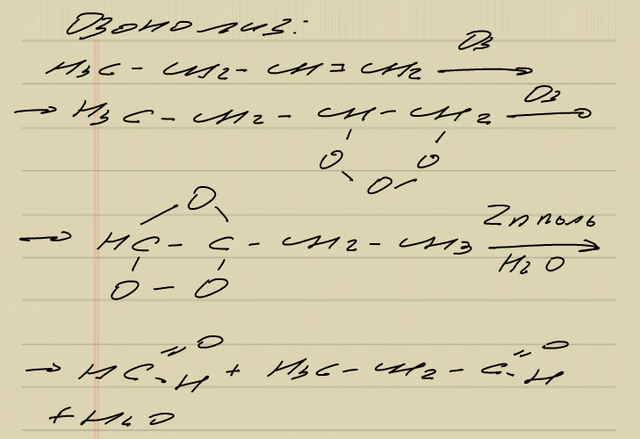 Озонолиз:
H3C - CH2 - CH = CH2 O3 →
→ H3C - CH2 - CH - CH2 O3 →
O O
O
O
→ HC - C - CH2 - CH3 Zn пыль H2O →
O - O
→ HC =O -H + H3C - CH2 - C =O -H
+ H2O